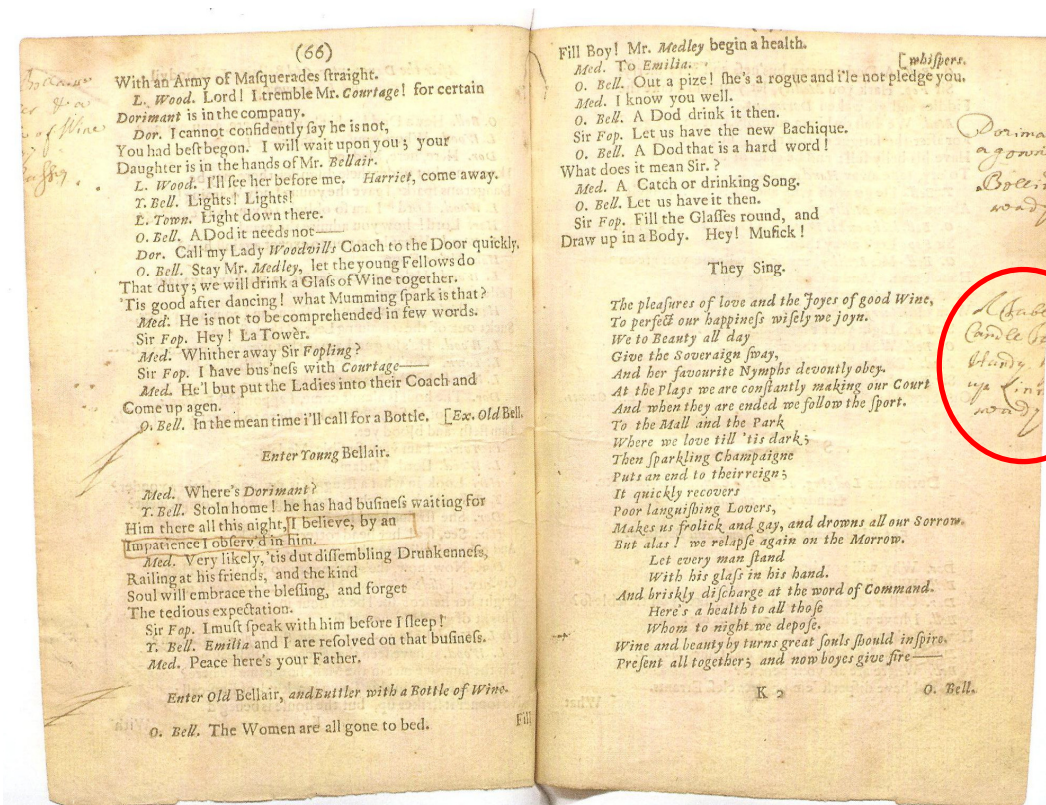 (66)
With an Army of Maſquerades ſtraight.
L. Wood. Lord! I tremble Mr. Courtage! for certain
Dorimant is in the company.
Dor. I cannot confidently ſay he is not,
You had beſt begon. I will wait upon you; your
Daughter is in the hands of Mr. Bellair.
L. Wood. I'll ſee her before me. Harriet, come away.
Y. Bell. Lights! Lights!
L. Town. Light down there.
O. Bell. A Dod it needs not——
Dor. Call my Lady Woodvills Coach to the Door quickly.
O. Bell. Stay Mr. Medley, let the young Fellows do
That duty; we will drink a Glaſs of Wine together.
'Tis good after dancing! what Mumming ſpark is that?
Med. He is not to be comprehended in few words.
Sir Fop. Hey! La Towèr.
Med. Whither away Sir Fopling?
Sir Fop. I have bus'neſs with Courtage——
Med. He'l but put the Ladies into their Coach and
Come up agen.
O. Bell. In the mean time i'll call for a Bottle. [Ex. Old Bell.
Enter Young Bellair.
Med. Where's Dorimant?
Y. Bell. Stoln home! he has had buſineſs waiting for
Him there all this night, I believe, by an
Impatience I obſerv'd in him.
Med. Very likely, 'tis dut diſſembling Drunkenneſs,
Railing at his friends, and the kind
Soul will embrace the bleſſing, and forget
The tedious expectation.
Sir Fop. I muſt ſpeak with him before I ſleep!
Y. Bell. Emilia and I are reſolved on that buſineſs.
Med. Peace here's your Father.
Enter Old Bellair, and Buttler with a Bottle of Wine.
O. Bell. The Women are all gone to bed.
Fill
of Wine
Fill Boy! Mr. Medley begin a health.
Med. To Emilia. [whiſpers.
O. Bell. Out a pize! ſhe's a rogue and i'le not pledge you.
Med. I know you well.
O. Bell. A Dod drink it then.
Sir Fop. Let us have the new Bachique.
O. Bell. A Dod that is a hard word!
What does it mean Sir.?
Med. A Catch or drinking Song.
O. Bell. Let us have it then.
Sir Fop. Fill the Glaſſes round, and
Draw up in a Body. Hey! Muſick!
They Sing.
The pleaſures of love and the Joyes of good Wine,
To perfect our happineſs wiſely we joyn.
We to Beauty all day
Give the Soveraign ſway,
And her favourite Nymphs devoutly obey.
At the Plays we are conſtantly making our Court
And when they are ended we follow the ſport.
To the Mall and the Park
Where we love till 'tis dark;
Then ſparkling Champaigne
Puts an end to their reign;
It quickly recovers
Poor languiſhing Lovers,
Makes us frolick and gay, and drowns all our Sorrow.
But alas! we relapſe again on the Morrow.
Let every man ſtand
With his glaſs in his hand.
And briskly diſcharge at the word of Command.
Here's a health to all thoſe
Whom to night we depoſe.
Wine and beauty by turns great ſouls ſhould inſpire.
Preſent all together; and now boyes give fire——
K 2
O. Bell.
Dorima
a gown
ready
Candle
Handy
up Linn
ready